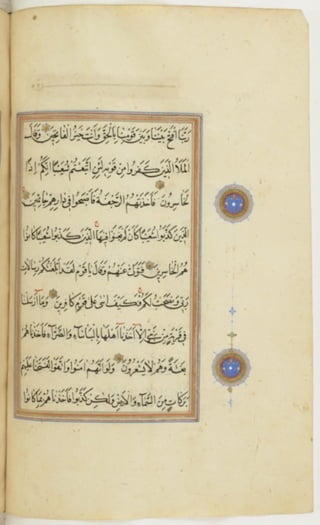 رَبَّنَا افْتَحْ بَيْنَنَا وَبَيْنَ قَوْمِنَا بِالْحَقِّ وَأَنْتَ خَيْرُ الْفَاتِحِينَ وَقَالَ
الْمَلَأُ الَّذِينَ كَفَرُوا مِنْ قَوْمِهِ لَئِنِ اتَّبَعْتُمْ شُعَيْبًا إِنَّكُمْ إِذًا
لَخَاسِرُونَ فَأَخَذَتْهُمُ الرَّجْفَةُ فَأَصْبَحُوا فِي دَارِهِمْ جَاثِمِينَ
الَّذِينَ كَذَّبُوا شُعَيْبًا كَأَنْ لَمْ يَغْنَوْا فِيهَا الَّذِينَ كَذَّبُوا شُعَيْبًا كَانُوا
هُمُ الْخَاسِرِينَ فَتَوَلَّى عَنْهُمْ وَقَالَ يَا قَوْمِ لَقَدْ أَبْلَغْتُكُمْ رِسَالَاتِ
رَبِّي وَنَصَحْتُ لَكُمْ فَكَيْفَ آسَى عَلَى قَوْمٍ كَافِرِينَ وَمَا أَرْسَلْنَا
فِي قَرْيَةٍ مِنْ نَبِيٍّ إِلَّا أَخَذْنَا أَهْلَهَا بِالْبَأْسَاءِ وَالضَّرَّاءِ فَأَخَذْنَاهُمْ
بَغْتَةً وَهُمْ لَا يَشْعُرُونَ وَلَوْ أَنَّهُمْ آمَنُوا وَاتَّقَوْا لَفَتَحْنَا عَلَيْهِمْ
بَرَكَاتٍ مِنَ السَّمَاءِ وَالْأَرْضِ وَلَكِنْ كَذَّبُوا فَأَخَذْنَاهُمْ بِمَا كَانُوا